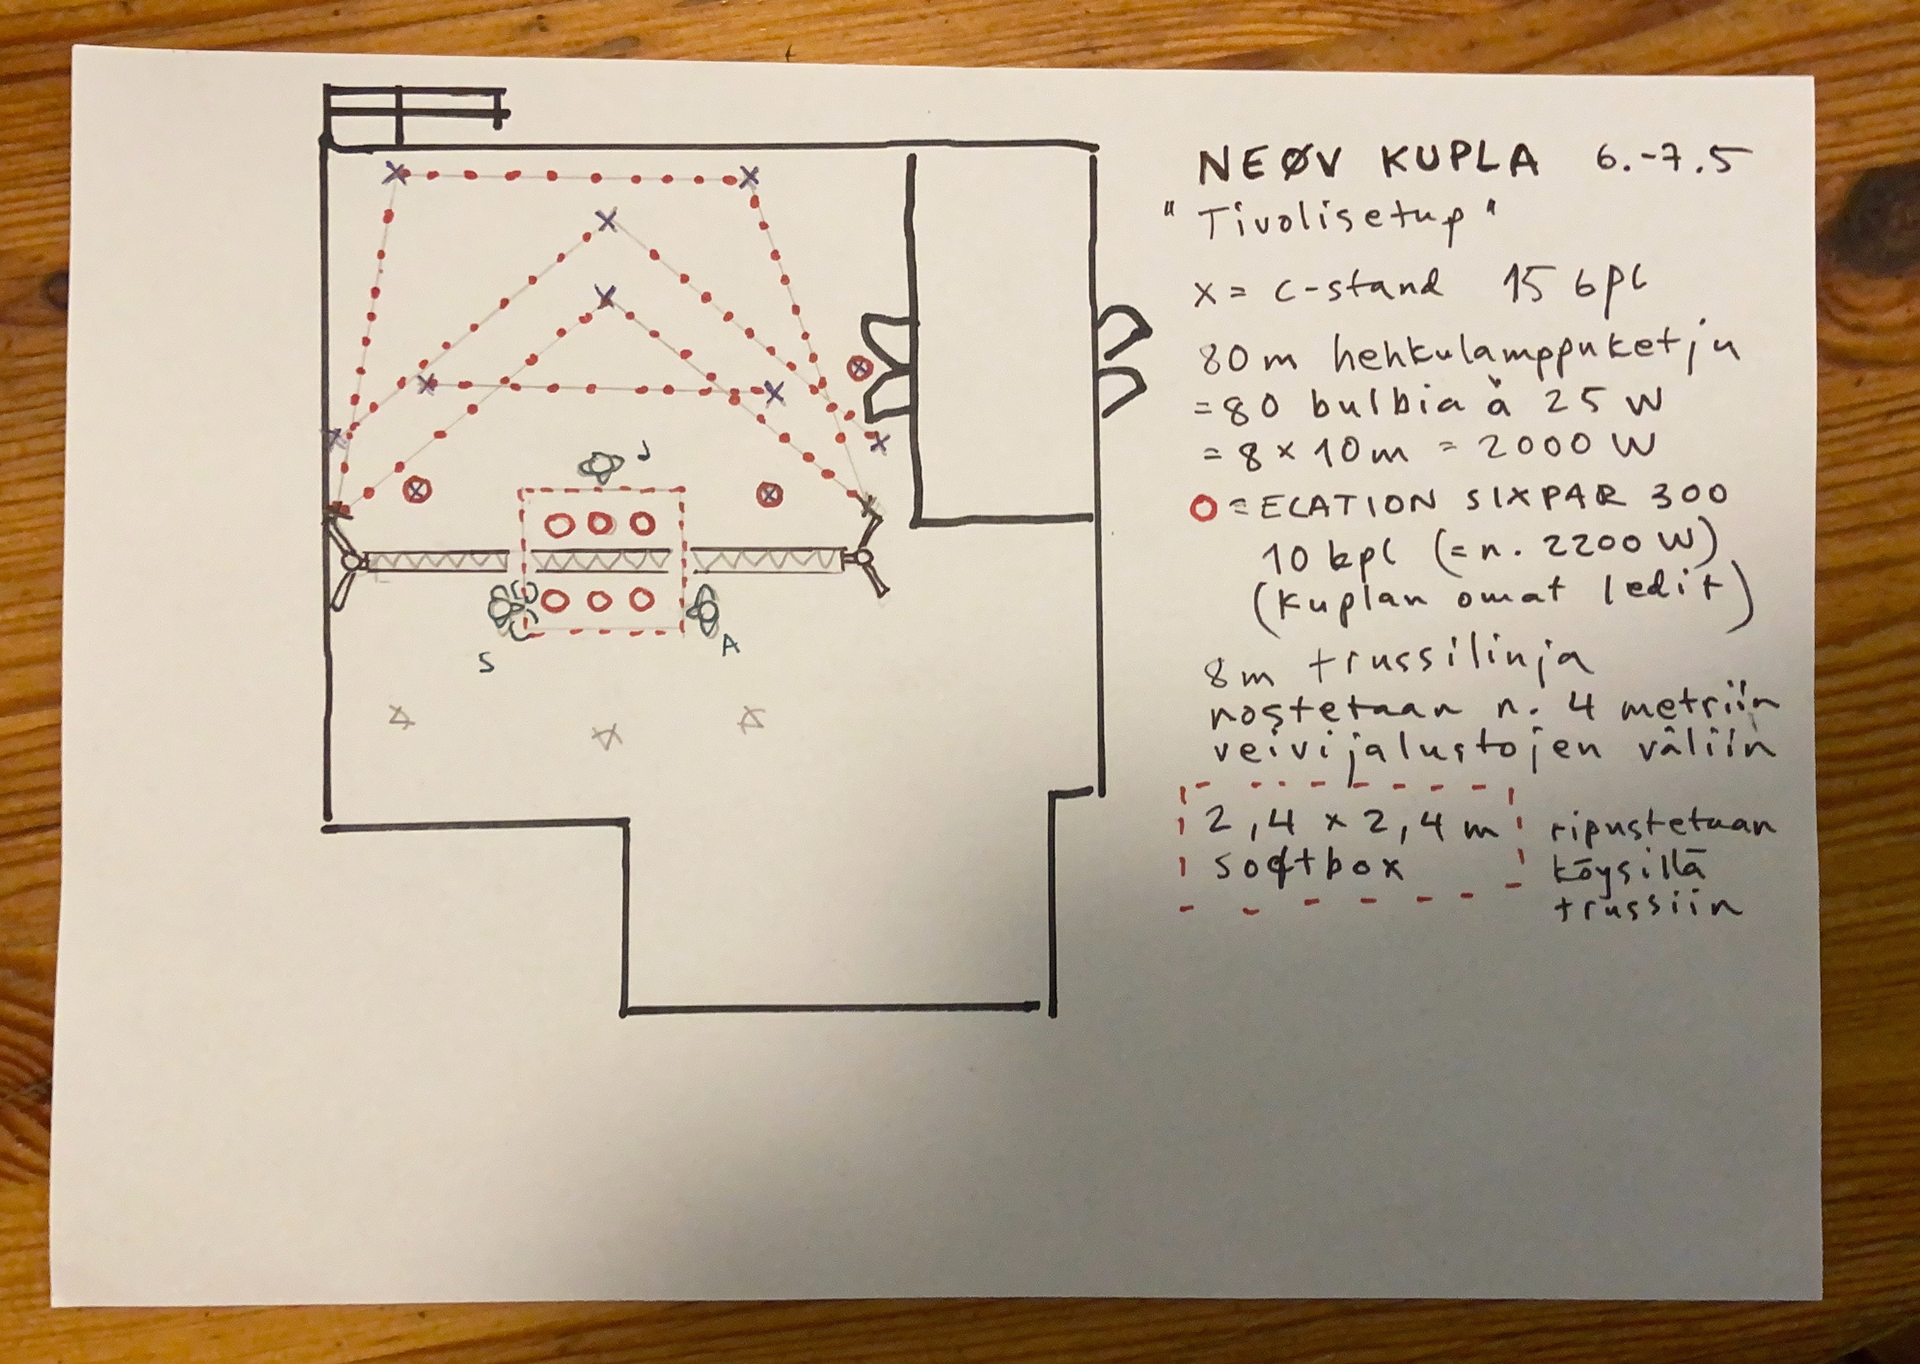 NEØV KUPLA 6.-7.5
"Tivolisetup"
x = c-stand 15 kpl
80 m hehkulamppuketju
= 80 bulbia à 25 W
= 8 x 10 m = 2000 W
O = ELATION SIXPAR 300
10 kpl (= n. 2200 W)
(Kuplan omat ledit)
8m trussilinja
nostetaan n. 4 metriin
veivijalustojen väliin
2,4 x 2,4 m
softbox
ripustetaan
köysillä
trussiin
J
S
A